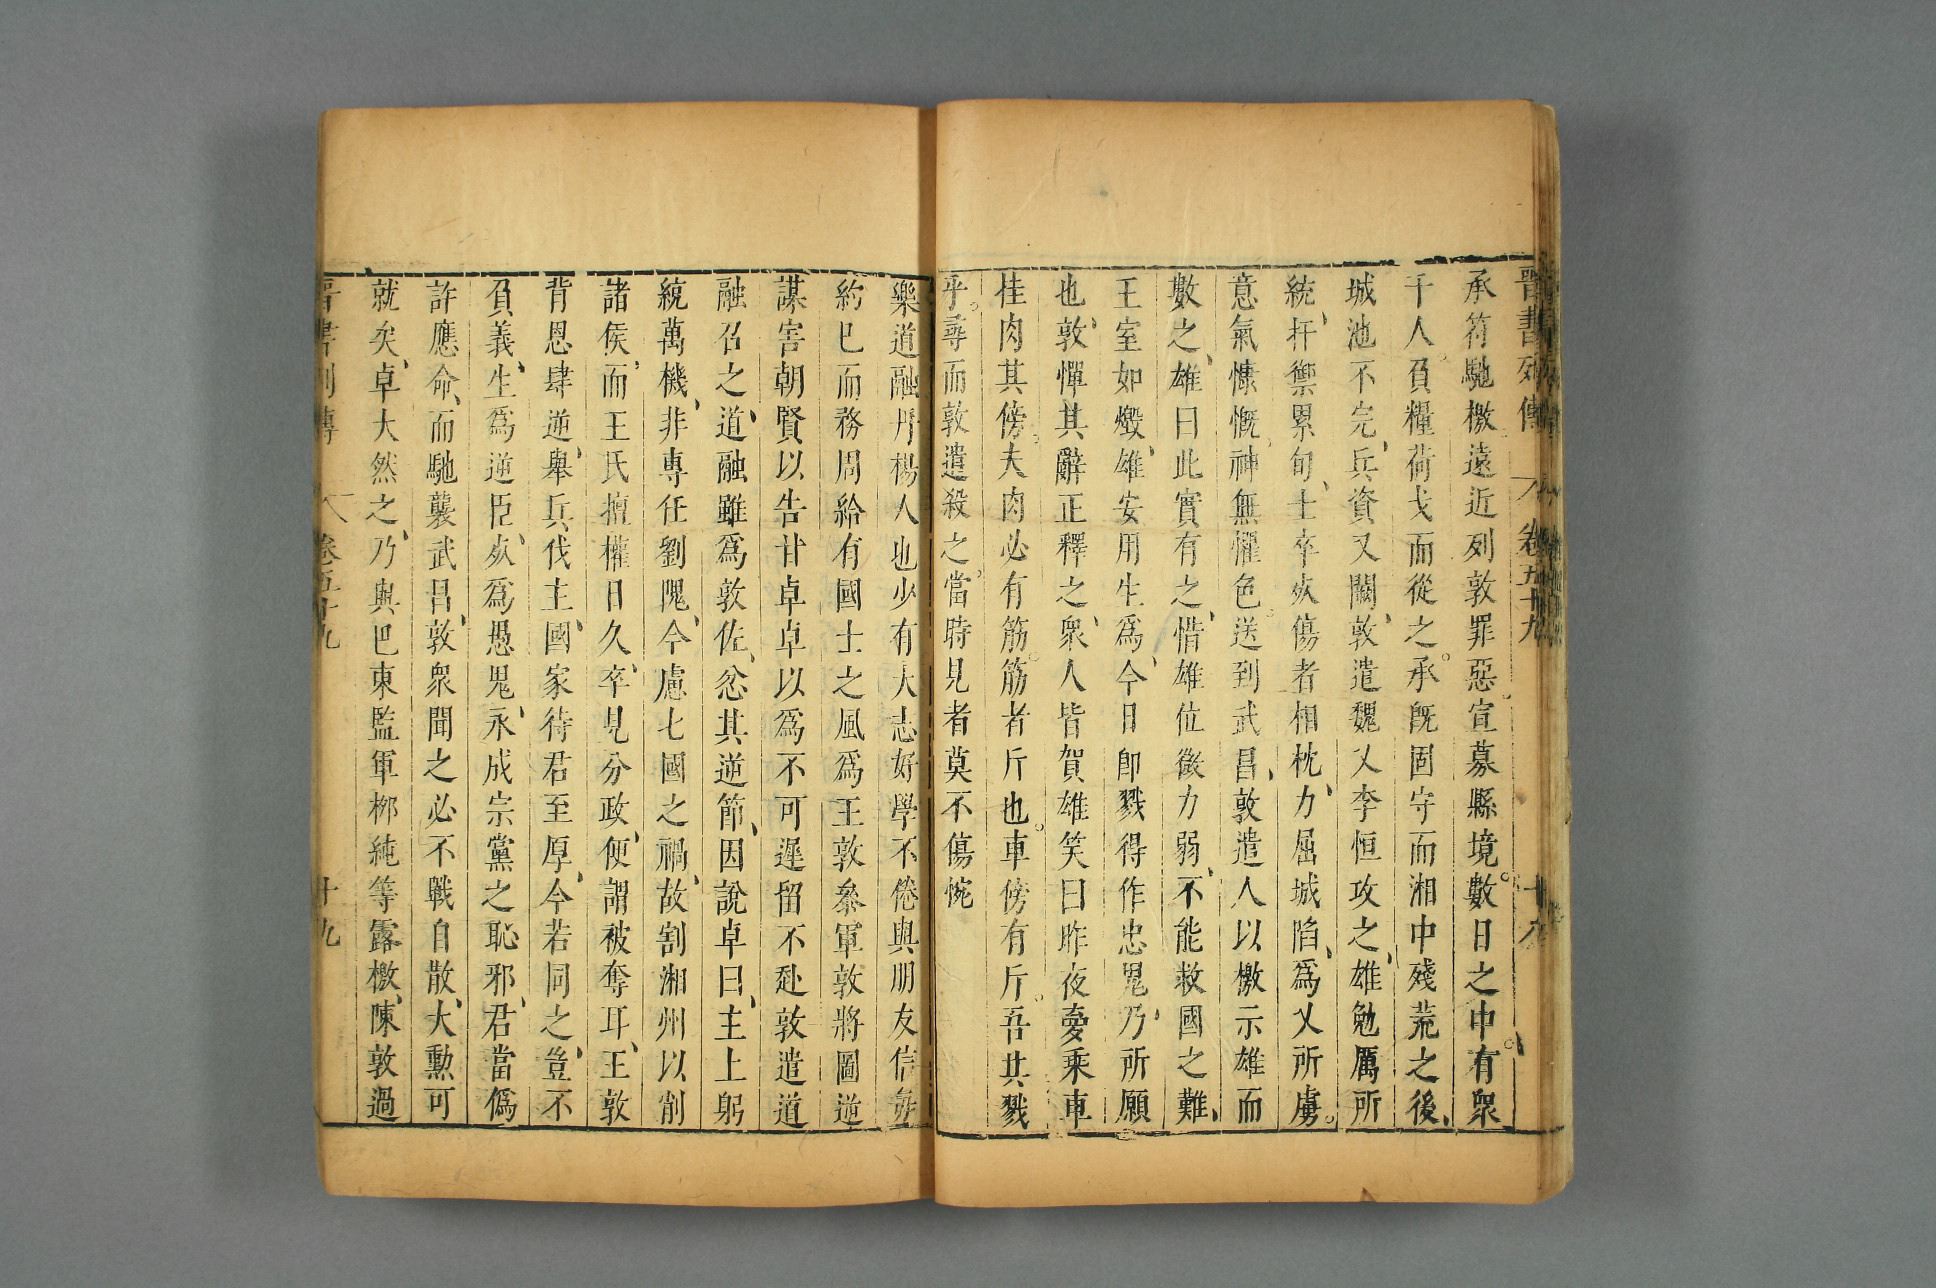 晉書列傳 卷五十九 十八
承符馳檄遠近列敦罪惡宣募縣境數日之中有衆
千人負糧荷戈而從之承旣固守而湘中殘荒之後
城池不完兵資又闕敦遣魏乂李恒攻之雄勉厲所
統扞禦累旬士卒死傷者相枕力屈城陷爲乂所虜
意氣慷慨神無懼色送到武昌敦遣人以檄示雄而
數之雄曰此實有之惜雄位微力弱不能救國之難
王室如燬雄安用生爲今日卽戮得作忠鬼乃所願
也敦憚其辭正釋之衆人皆賀雄笑曰昨夜夢乘車
桂肉其傍夫肉必有筋筋者斤也車傍有斤吾其戮
乎尋而敦遣殺之當時見者莫不傷惋
樂道融丹楊人也少有大志好學不倦與朋友信每
約已而務周給有國士之風爲王敦參軍敦將圖逆
謀害朝賢以告甘卓卓以爲不可遲留不赴敦遣道
融召之道融雖爲敦佐忿其逆節因說卓曰主上躬
統萬機非專任劉隗今慮七國之禍故割湘州以削
諸侯而王氏擅權日久卒見分政便謂被奪耳王敦
背恩肆逆舉兵伐主國家待君至厚今若同之豈不
負義生爲逆臣死爲愚鬼永成宗黨之恥邪君當僞
許應命而馳襲武昌敦衆聞之必不戰自散大勳可
就矣卓大然之乃與巴東監軍桞純等露檄陳敦過
晉書列傳 卷五十九 十九